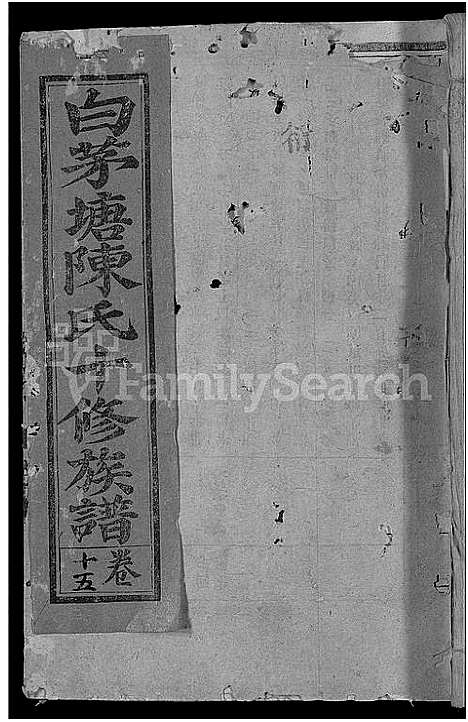 白茅塘陳氏十修族譜
卷
十五
FamilySearch